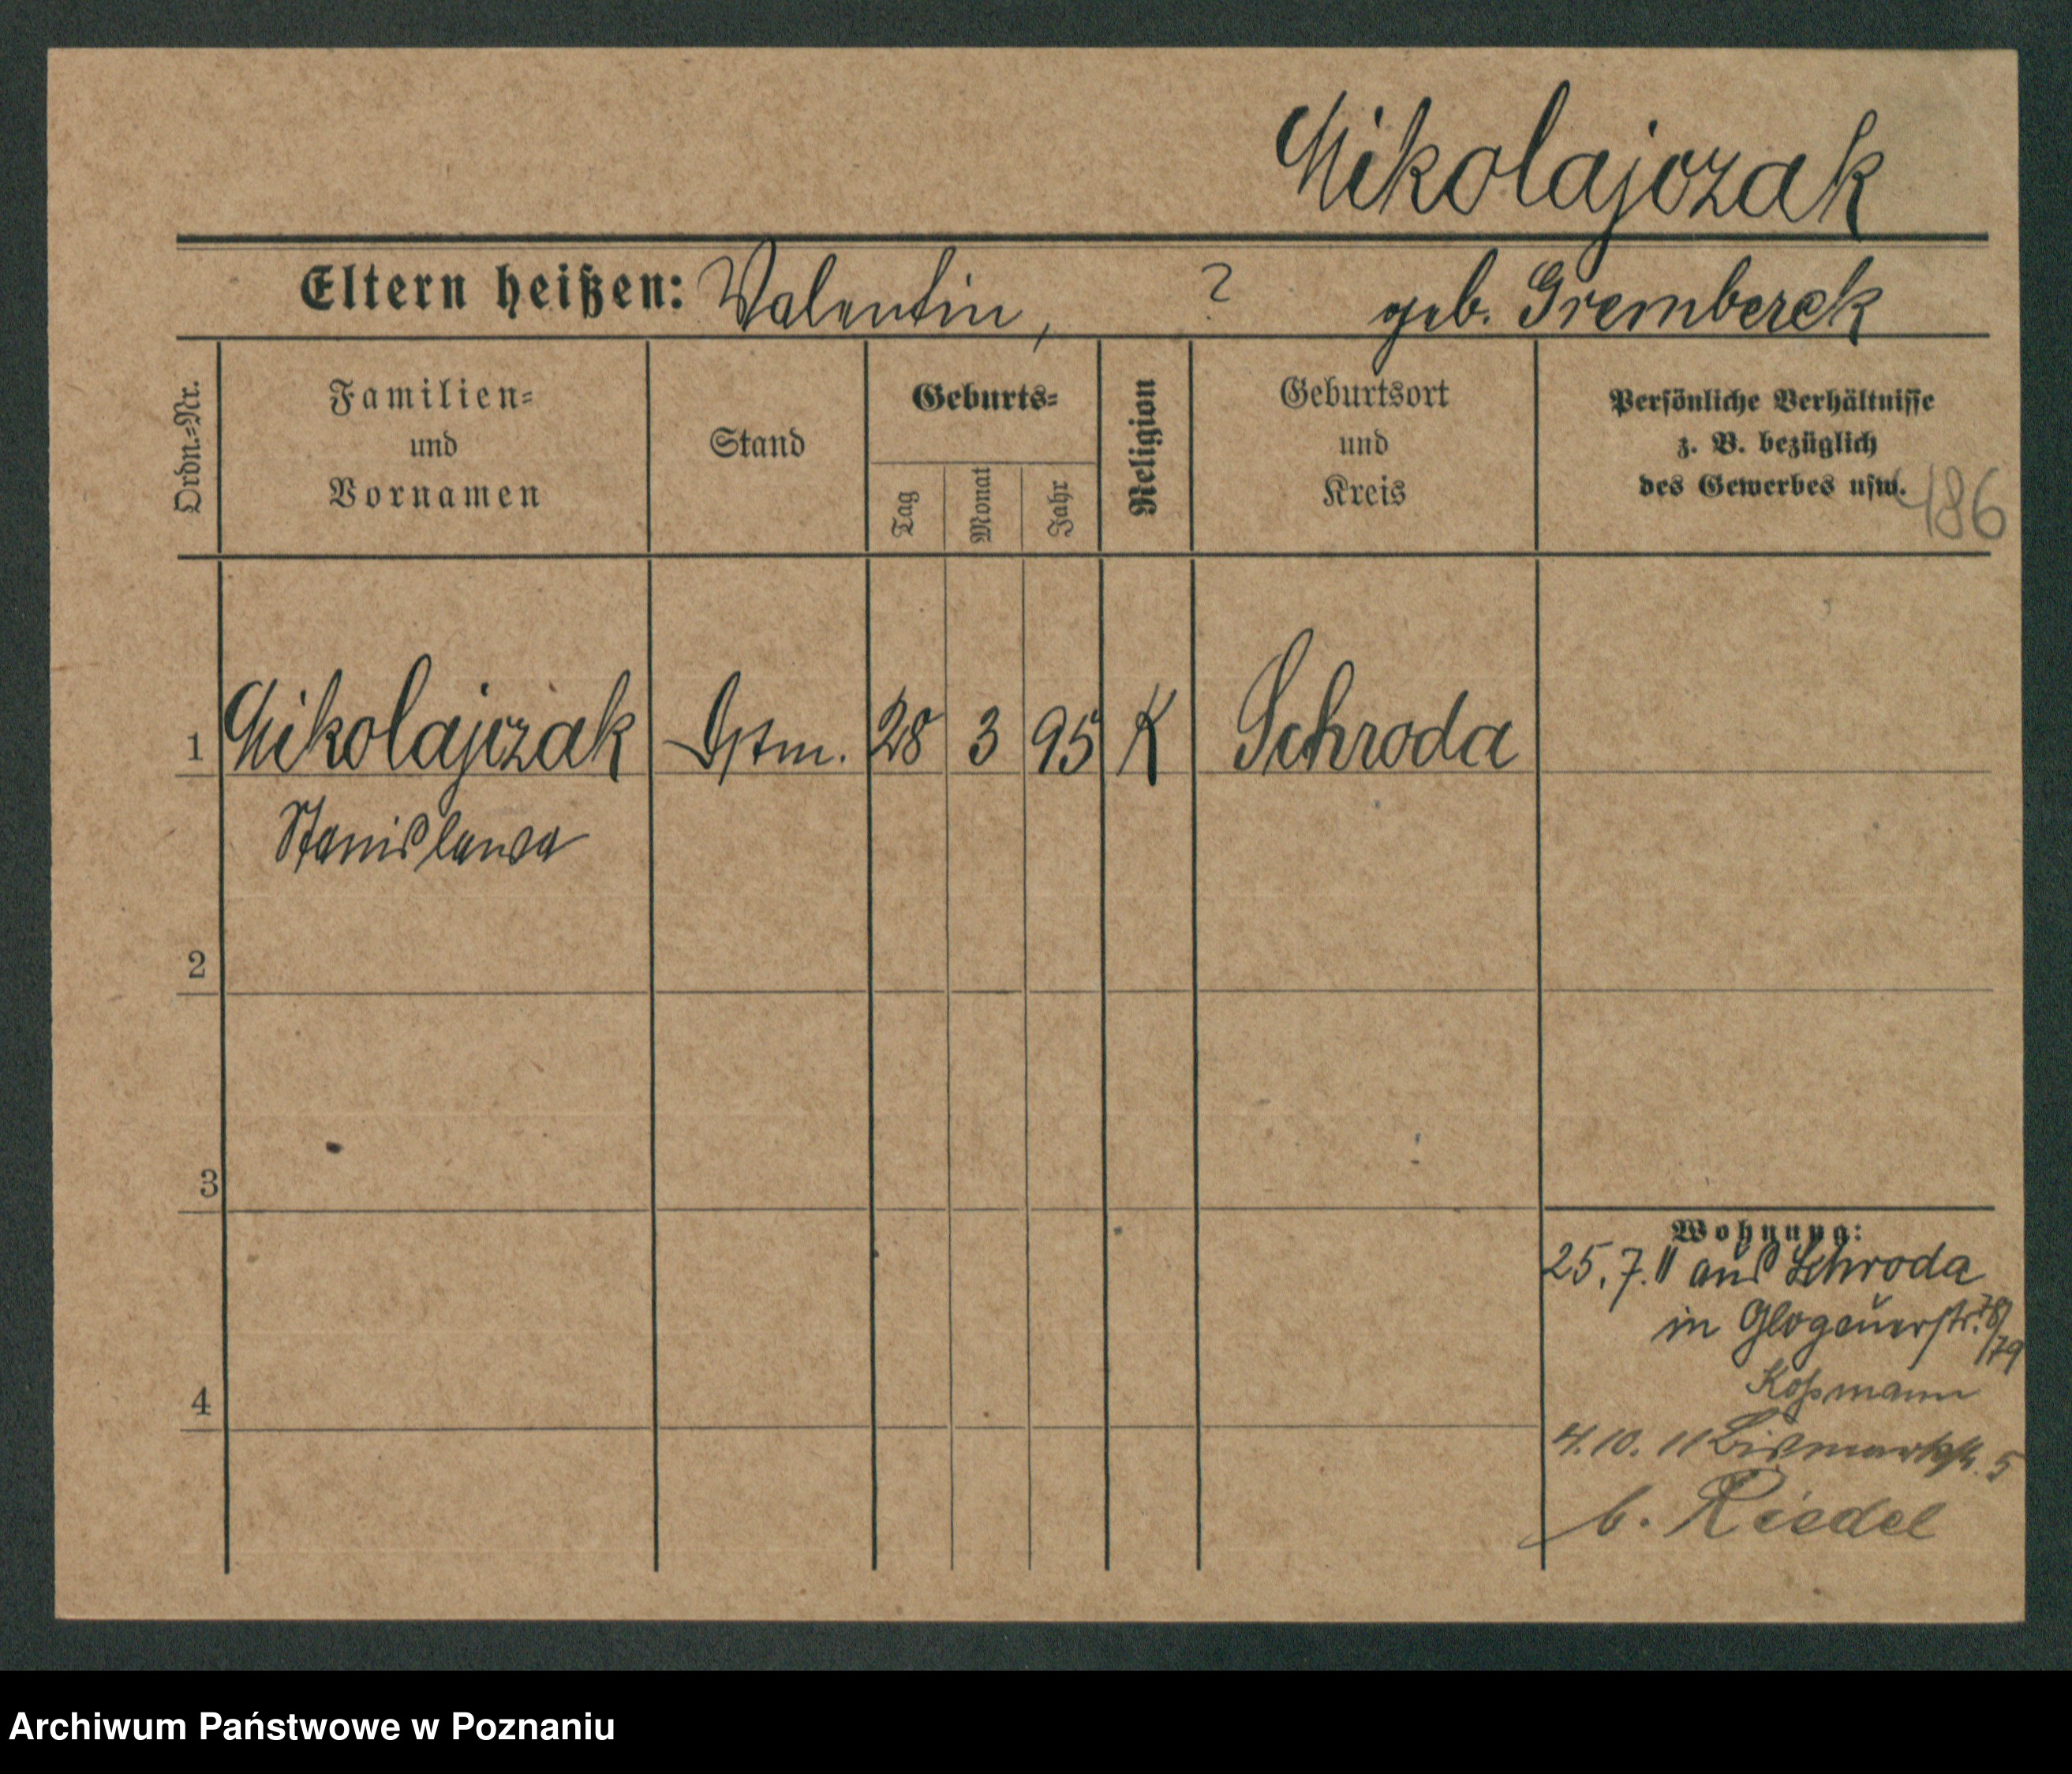 Mikolajczak
Eltern heißen: Valentin, ? geb. Gremberek
Ordn.=Nr.
Familien=
und
Vornamen
Stand
Geburts=
Tag
Monat
Jahr
Religion
Geburtsort
und
Kreis
Persönliche Verhältnisse
z. B. bezüglich
des Gewerbes usw.
486
1 Mikolajczak Dstm. 28 3 95 K Schroda
Stanislawa
2
3
4
Wohnung:
25.7.11 aus Schroda
in Glogauerstr. 78/79
Koßmann
4.10.11 Bismarckstr. 5
b. Riedel
Archiwum Państwowe w Poznaniu